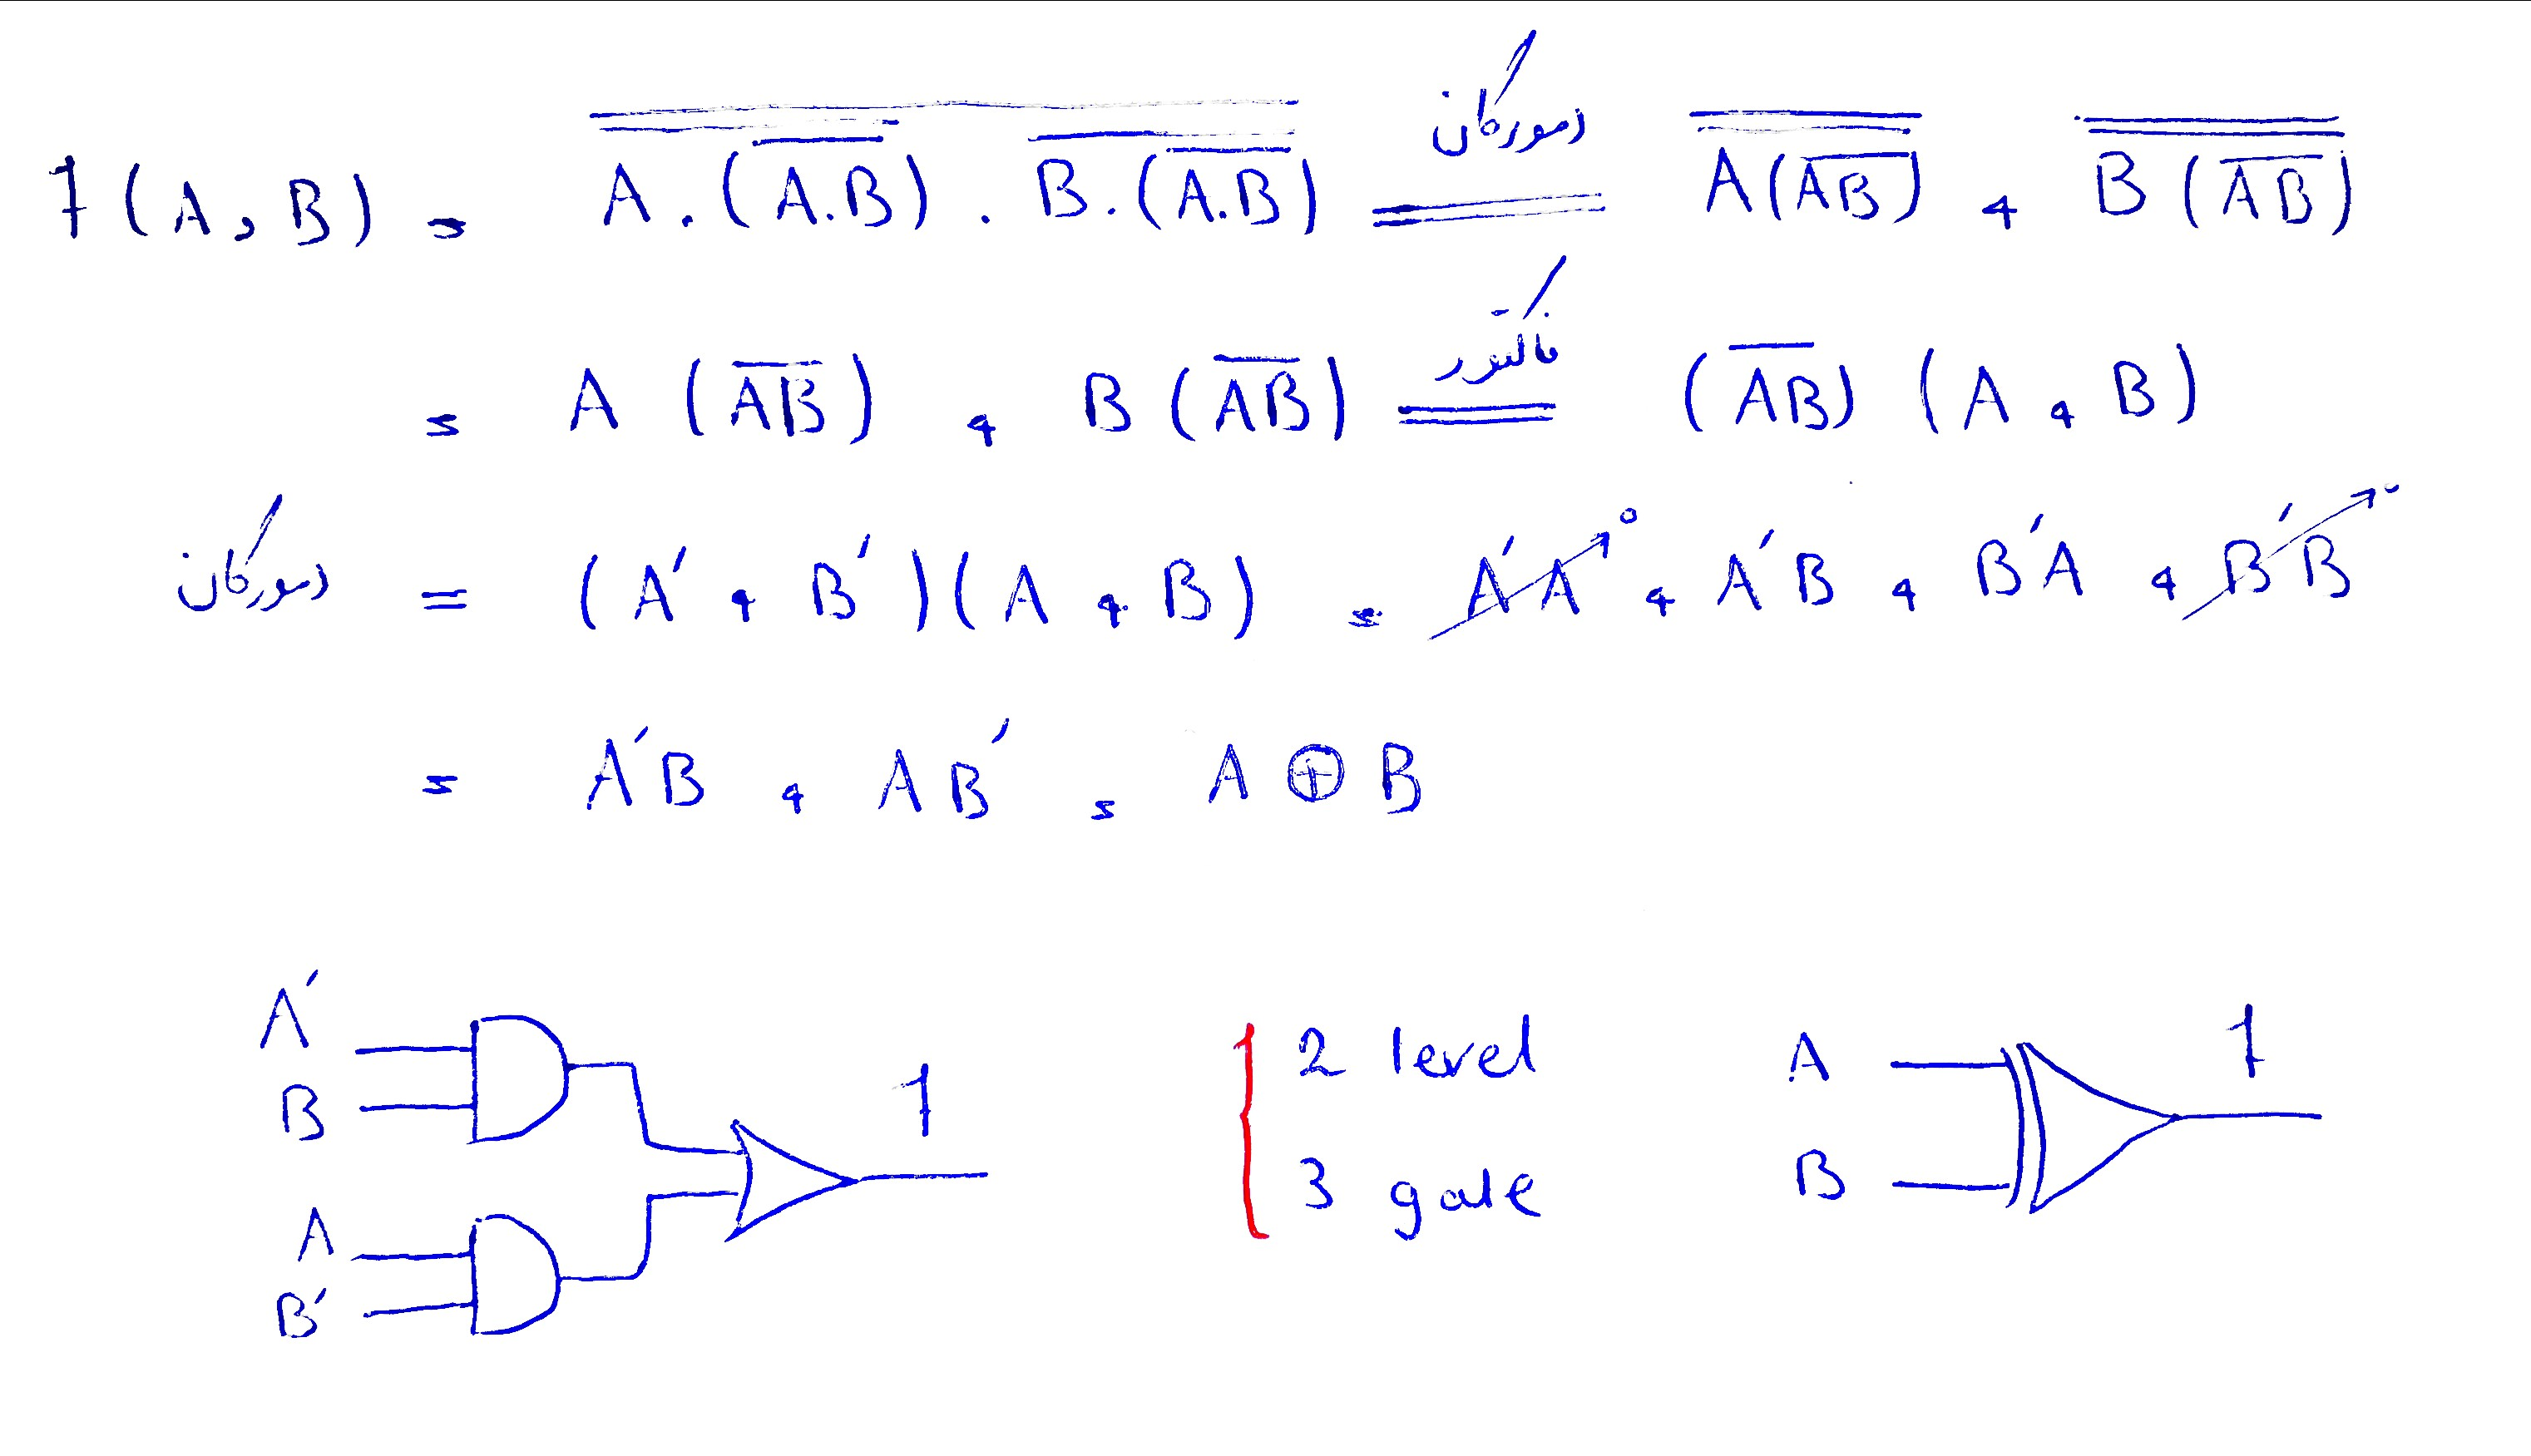 f(A,B) = \overline{\overline{A.(\overline{A.B})} . \overline{B.(\overline{A.B})}} دمورگان = \overline{\overline{A(\overline{AB})}} + \overline{\overline{B(\overline{AB})}}
= A(\overline{AB}) + B(\overline{AB}) فاکتور = (\overline{AB})(A+B)
دمورگان = (A'+B')(A+B) = A'A 0 + A'B + B'A + B'B 0
= A'B + AB' = A⊕B
A'
B
A
B'
f
2 level
3 gate
A
B
f